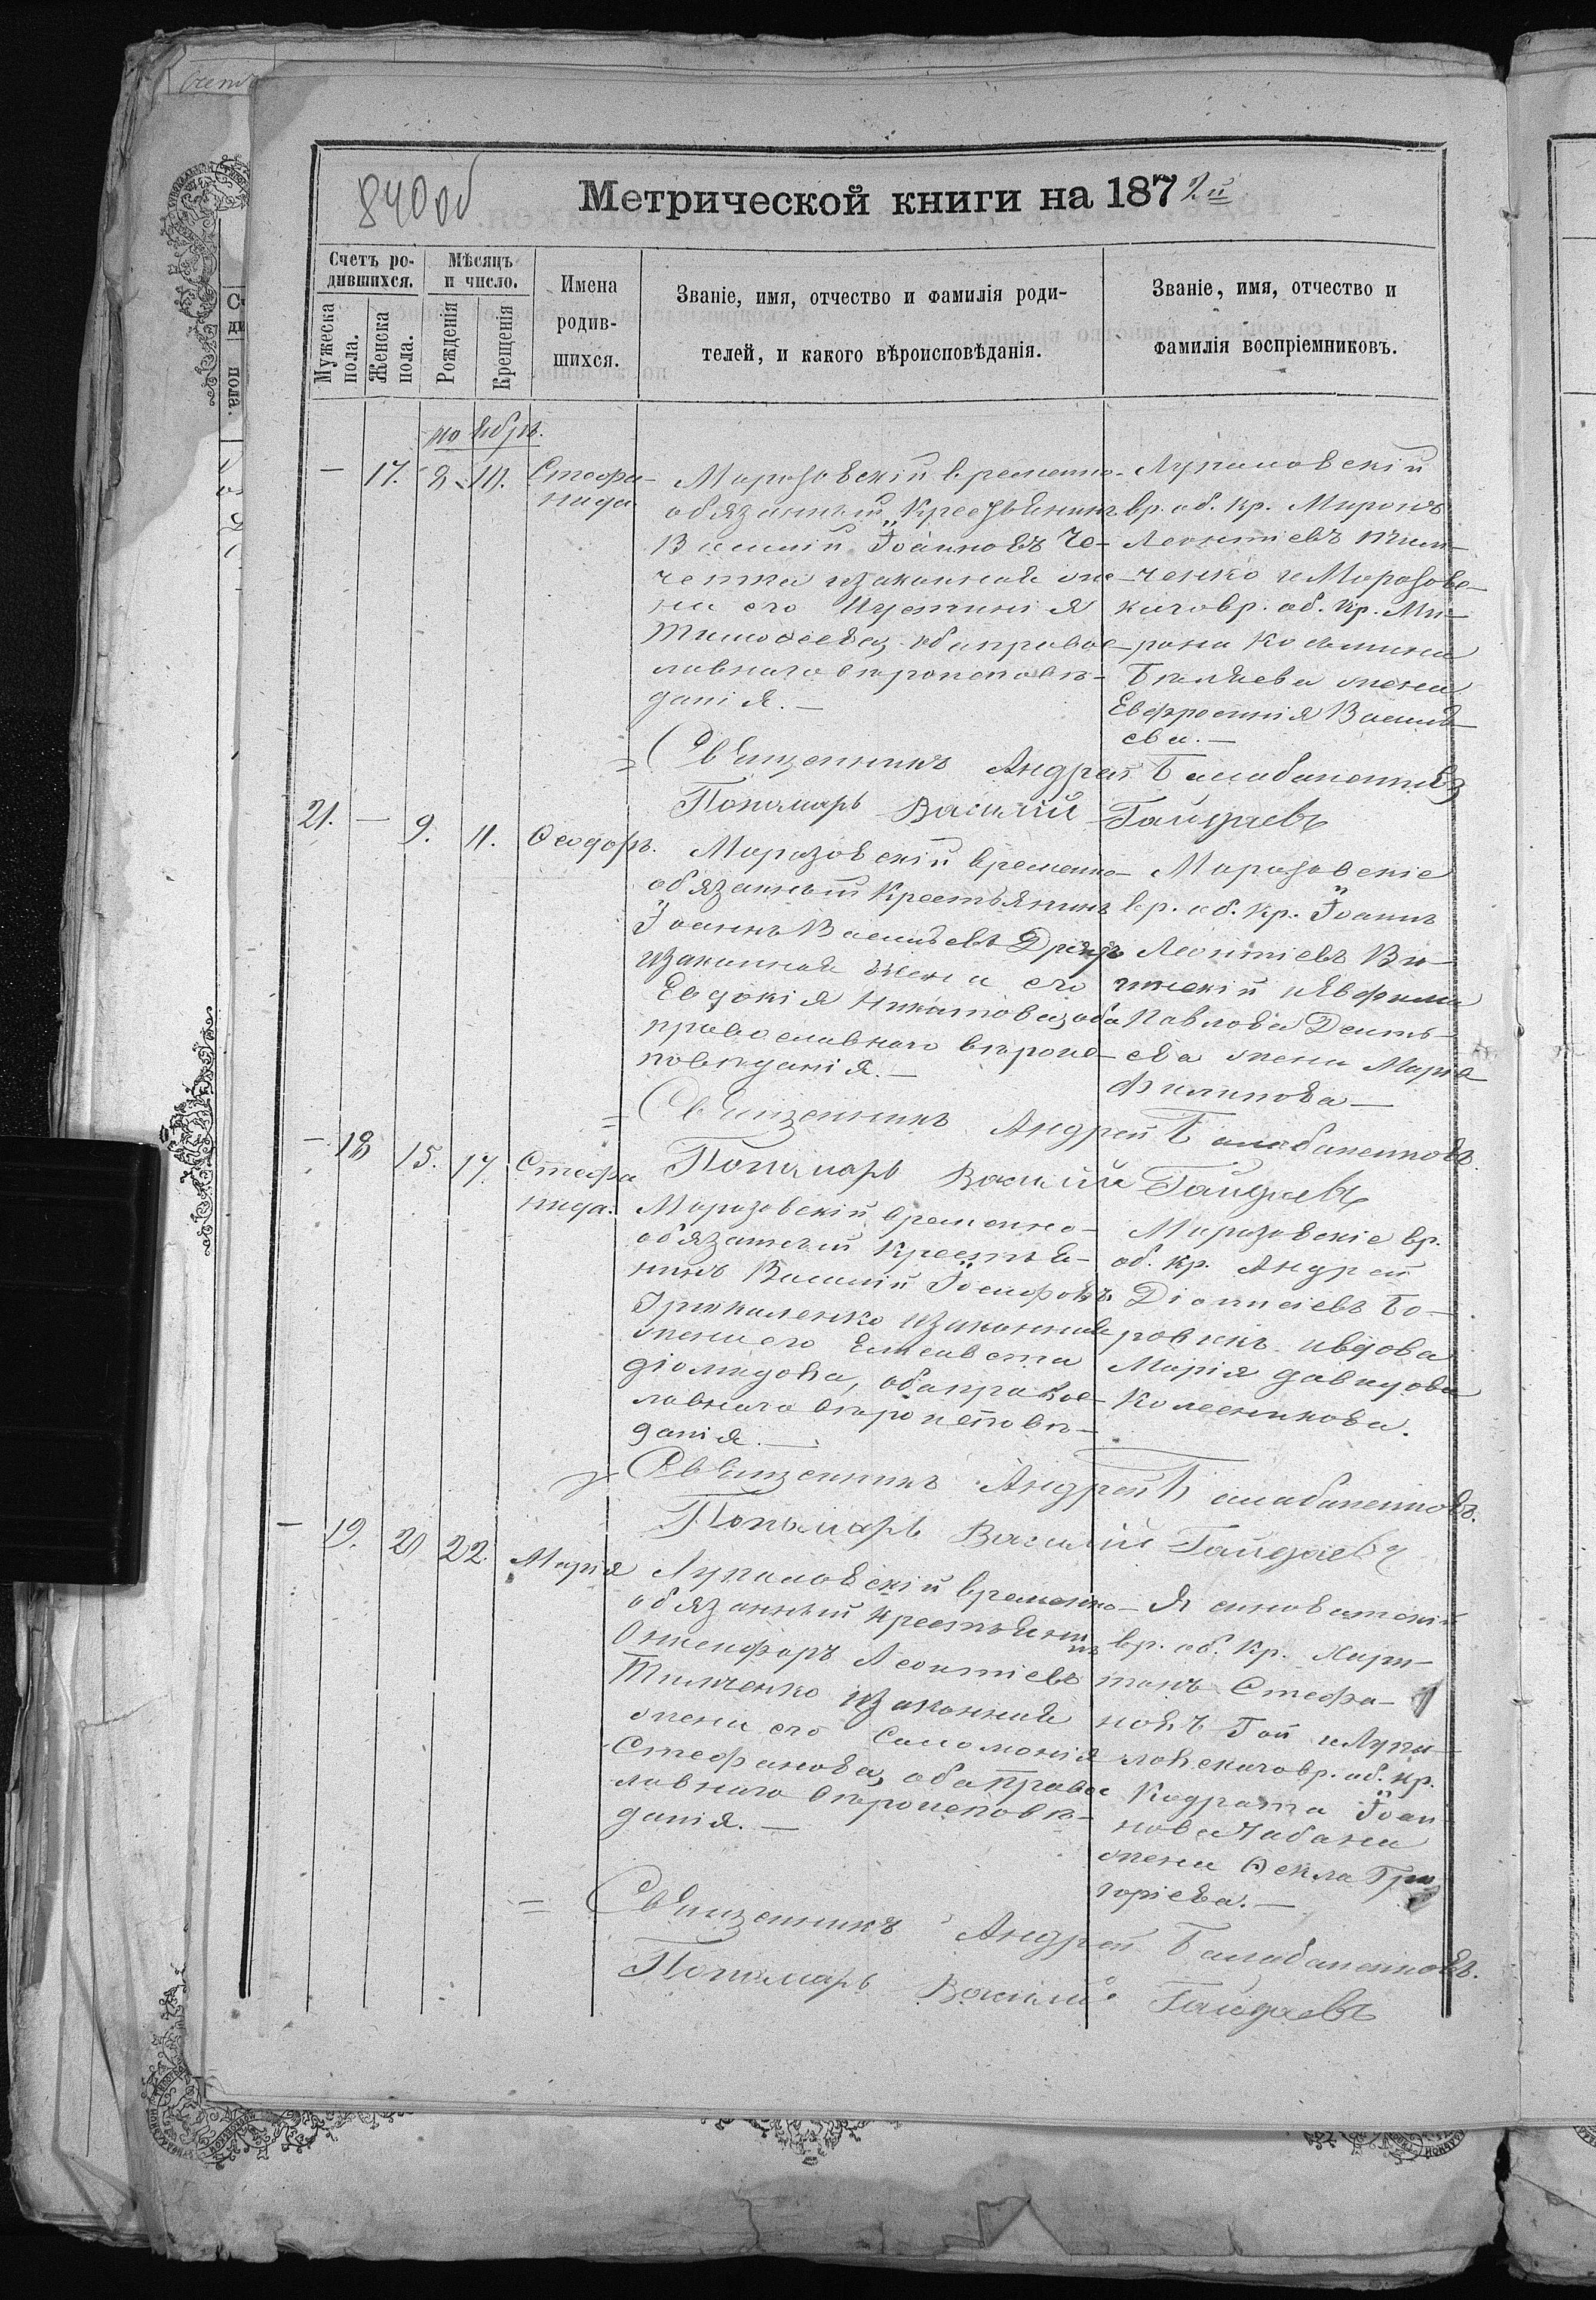 840об
Метрической книги на 1872й
Счетъ ро-
дившихся.
Мѣсяцъ
и число.
Мужеска
пола.
Женска
пола.
Рожденія
Крещенія
Имена
родив-
шихся.
Званіе, имя, отчество и фамилія роди-
телей, и какого вѣроисповѣданія.
Званіе, имя, отчество и
фамилія воспріемниковъ.
ноябрь.
— 17. 8. 10. Стефа-
нида.
Морозовскій временно-
обязанный Крестьянинъ
Василій Іоанновъ Че-
четка изаконная же-
на его Іустинія
Тимоѳеева, оба правос-
лавнаго вѣроисповѣ-
данія. —
Лупиловскій
вр. об. кр. Миронъ
Леонтіевъ
ченко и Морозовс-
каго вр. об. кр. Ми-
рона Косьмина
Бѣляева жена
Евфросинія Василь-
ева. —
Священникъ Андрей Балабаненковъ
Пономарь Василій Гайдаевъ
21. — 9. 11. Ѳеодоръ.
Морозовскій временно-
обязанный Крестьянинъ
Іоаннъ Васильевъ
изаконная жена его
Евдокія оба
православнаго вѣроис-
повѣданія. —
Морозовскіе
вр. об. кр. Іоаннъ
Леонтіевъ Ви-
тискій
Павлова
ева жена Марія
Филипова —
Священникъ Андрей Балабаненковъ.
Пономарь Василій Гайдаевъ
— 18 15. 17. Стефа
нида.
Морозовскій временно-
обязанный Крестья-
нинъ Василій Іосифовъ
изаконная
жена его Елисавета
Діомидова, оба правос-
лавнаго вѣроисповѣ-
данія. —
Морозовскіе вр.
об. кр. Андрей
Діонисіевъ Бо-
ровикъ ивдова
Марія Давидова
Колесникова.
Священникъ Андрей Балабаненковъ.
Пономарь Василій Гайдаевъ
— 19. 20 22. Марія
Лупиловскій временно-
обязанный крестьянинъ
Онисифоръ Леонтіевъ
Тимченко изаконная
жена его Соломонія
Стефанова, оба правос
лавнаго вѣроисповѣ-
данія. —
Ясиноватскій
вр. об. кр. Хари-
тонъ Стефа-
новъ Гой и Лупи-
ловскаго вр. об. кр.
Кодрата Іоан-
нова Чабана
жена Ѳекла Гри
горіева. —
Священникъ Андрей Балабаненковъ.
Пономарь Василій Гайдаевъ